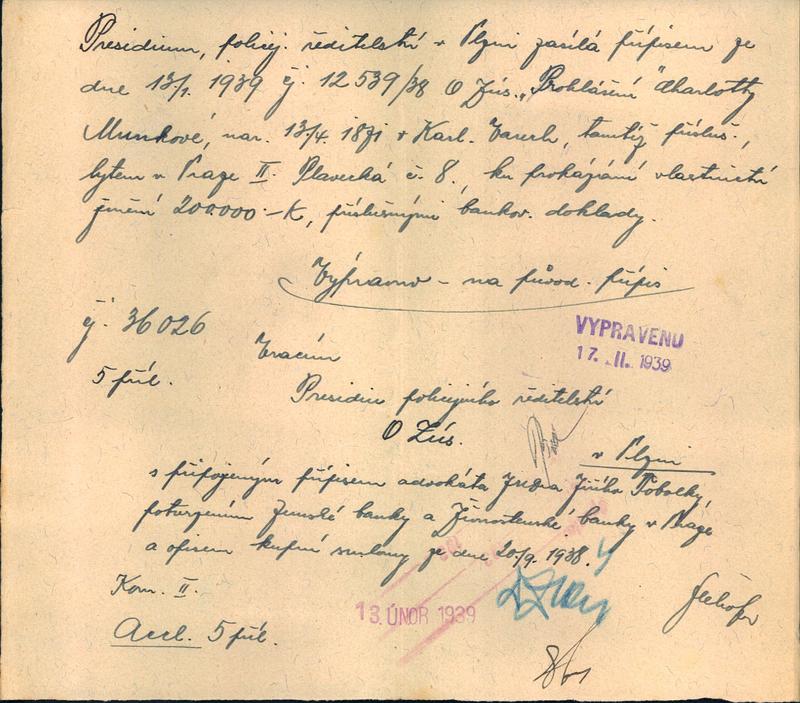 Presidium, policej. ředitelství v Plzni zasílá přípisem ze
dne 13/1. 1939 čj. 12539/38 O Zús. „Prohlášení" Charlotty
Munkové, nar. 13/4. 1871 v Karl. Varech, tamtéž přísluš.,
bytem v Praze II. Plavecká č. 8, ku prokázání vlastnictví
jmění 200.000.-K, příslušnými bankov. doklady.
Výpravno - na původ. přípis
čj. 36026
VYPRAVENO
17. II. 1939
Vracím
5 příl.
Presidiu policejního ředitelství
O Zús.
v Plzni
s připojeným přípisem advokáta Jiřího Pobolky,
potvrzením Zemské banky a Živnostenské banky v Praze
a opisem kupní smlouvy ze dne 20/9. 1938.
Kom. II.
13. ÚNOR 1939
Accl. 5 příl.